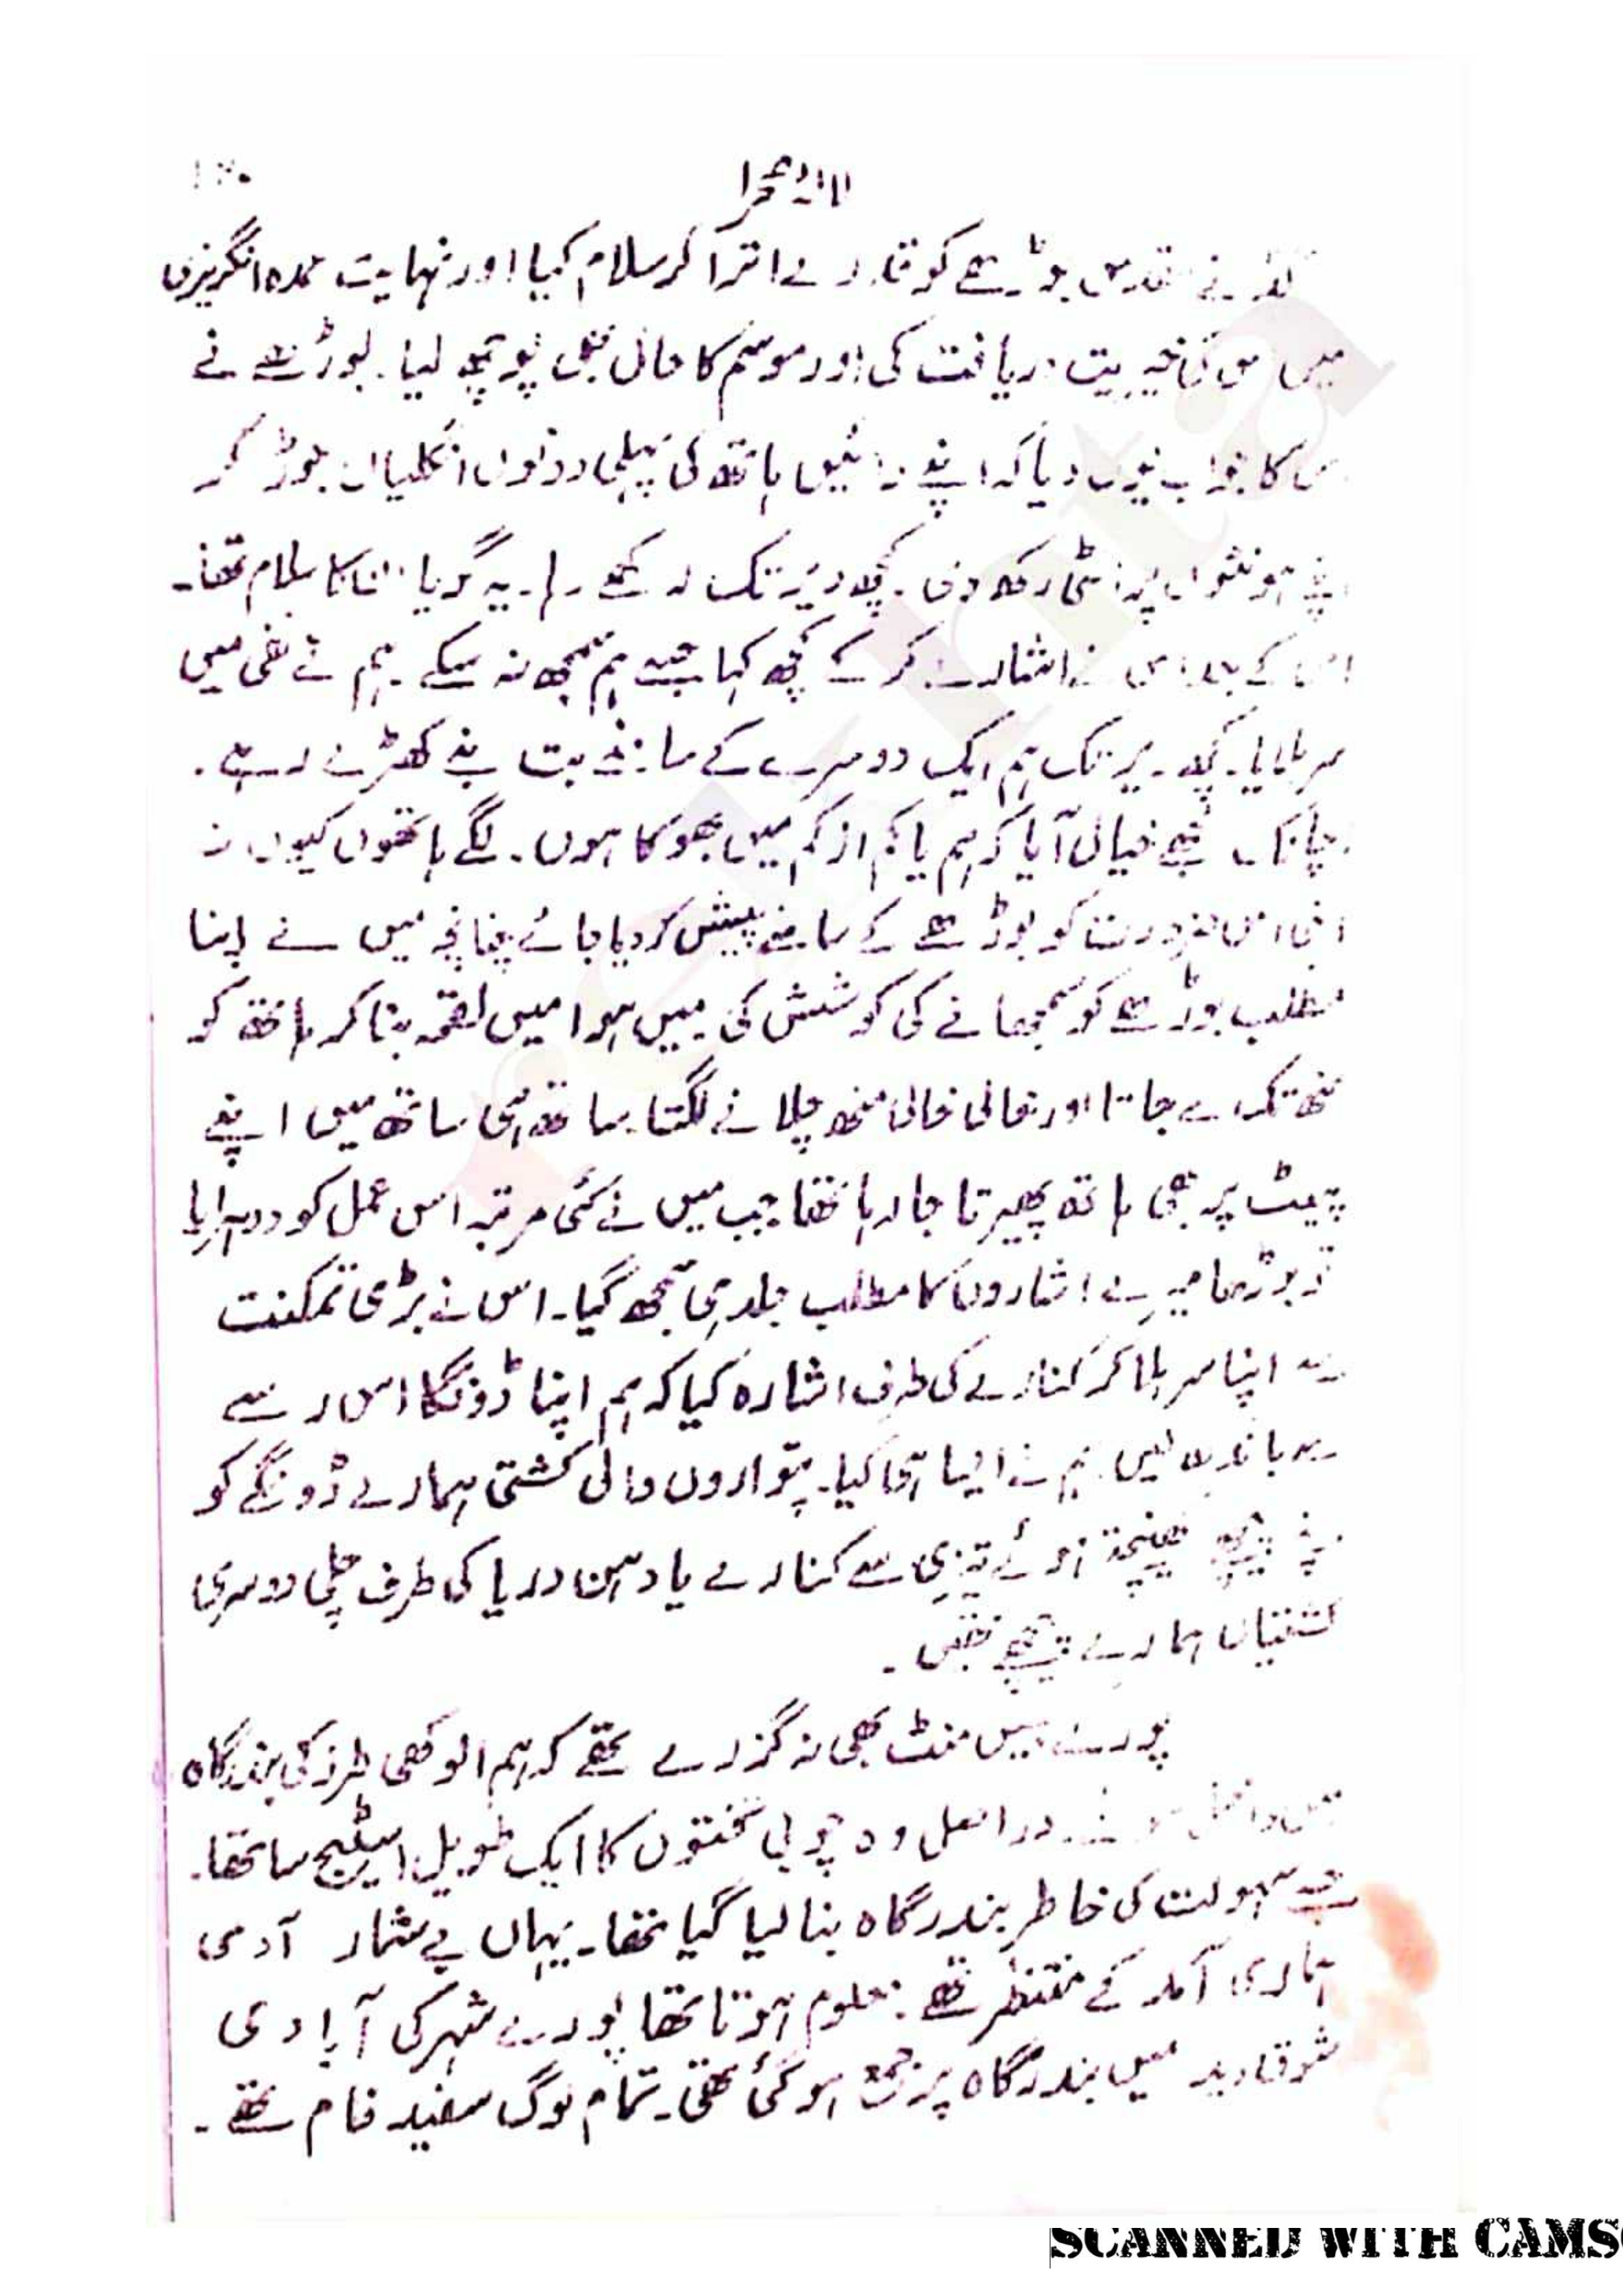 لالۂ صحرا
نے مقدس بوڑھے کو ہیٹ اترا کر سلام کیا اور نہایت عمدہ انگریزی
میں اس کی خیریت دریافت کی اور موسم کا حال بھی پوچھ لیا۔ بوڑھے نے
اس کا جواب یوں دیا کہ اپنے دائیں ہاتھ کی پہلی دونوں انگلیاں جوڑ کر
اپنے ہونٹوں پر رکھ دی۔ کچھ دیر تک رکھے رہا۔ یہ گویا ان کا سلام تھا۔
اس کے بعد اس نے اشارے کر کے کچھ کہا جسے ہم سمجھ نہ سکے۔ ہم نے نفی میں
سر ہلایا۔ کچھ دیر تک ہم ایک دوسرے کے سامنے بت بنے کھڑے رہے۔
اچانک مجھے خیال آیا کہ ہم یا کم از کم میں بھوکا ہوں۔ لگے ہاتھوں کیوں نہ
اپنی اس ضرورت کو بوڑھے کے سامنے پیش کر دیا جائے چنانچہ میں نے اپنا
مطلب بوڑھے کو سمجھانے کی کوشش کی میں ہوا میں لقمہ بنا کر ہاتھ کو
منھ تک لے جاتا اور خالی خالی منھ چلانے لگتا۔ ساتھ ہی ساتھ میں اپنے
پیٹ پر بھی ہاتھ پھیرتا جا رہا تھا جب میں نے کئی مرتبہ اس عمل کو دوہرایا
تو بوڑھا میرے اشاروں کا مطلب جلد ہی سمجھ گیا۔ اس نے بڑی تمکنت
سے اپنا سر ہلا کر کنارے کی طرف اشارہ کیا کہ ہم اپنا ڈونگا اس کے رسے
سے باندھ لیں ہم نے ایسا ہی کیا۔ پتواروں والی کشتی ہمارے ڈونگے کو
اپنے پیچھے کھینچتے ہوئے تیزی سے کنارے یا دہن دریا کی طرف چلی دوسری
کشتیاں ہمارے پیچھے تھیں۔
پورے بیس منٹ بھی نہ گزرے تھے کہ ہم انوکھی طرز کی بندرگاہ
میں داخل ہوئے۔ دراصل وہ چوبی تختوں کا ایک طویل اسٹیج سا تھا۔
جسے سہولت کی خاطر بندرگاہ بنا لیا گیا تھا۔ یہاں بے شمار آدمی
ہماری آمد کے منتظر تھے۔ معلوم ہوتا تھا پورے شہر کی آبادی
شوق دید میں بندرگاہ پر جمع ہو گئی تھی۔ تمام لوگ سفید فام تھے۔
SCANNED WITH CAMS